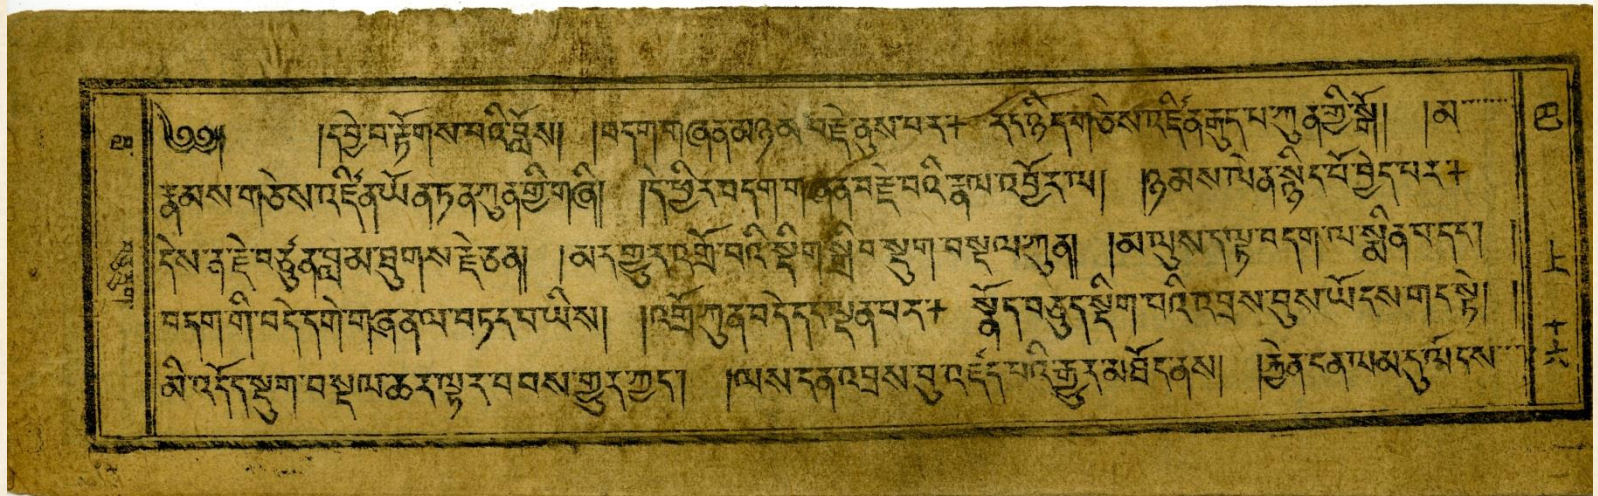 ༄༅། །དབྱེ་བ་རྟོགས་པའི་བློས། །བདག་གཞན་མཉམ་བརྗེ་ནུས་པར+ རང་ཉིད་གཅེས་འཛིན་རྒུད་པ་ཀུན་གྱི་སྒོ། །མ
རྣམས་གཅེས་འཛིན་ཡོན་ཏན་ཀུན་གྱི་གཞི། །དེ་ཕྱིར་བདག་གཞན་བརྗེ་བའི་རྣལ་འབྱོར་ལ། །ཉམས་ལེན་སྙིང་པོ་བྱེད་པར+
དེས་ན་རྗེ་བཙུན་བླ་མ་ཐུགས་རྗེ་ཅན། །མར་གྱུར་འགྲོ་བའི་སྡིག་སྒྲིབ་སྡུག་བསྔལ་ཀུན། །མ་ལུས་ད་ལྟ་བདག་ལ་སྨིན་པ་དང་། །
བདག་གི་བདེ་དགེ་གཞན་ལ་བཏང་བ་ཡིས། །འགྲོ་ཀུན་བདེ་དང་ལྡན་པར+ སྣོད་བཅུད་སྡིག་པའི་འབྲས་བུས་ཡོངས་གང་སྟེ། །
མི་འདོད་སྡུག་བསྔལ་ཆར་ལྟར་བབས་གྱུར་ཀྱང་། །ལས་ངན་འབྲས་བུ་འཛད་པའི་རྒྱུར་མཐོང་ནས། །རྐྱེན་ངན་ལམ་དུ་ལོངས
巴
上
十六